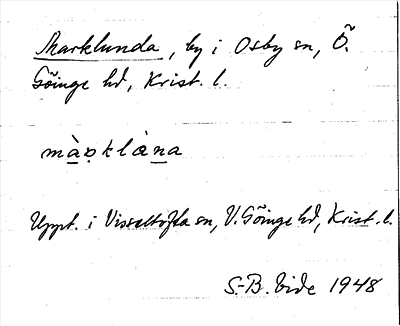 Marklunda, by i Osby sn, Ö.
Göinge hd, Krist. l.
màrklàna
Uppt. i Visseltofta sn, V. Göinge hd, Krist. l.
S.-B. Vide 1948